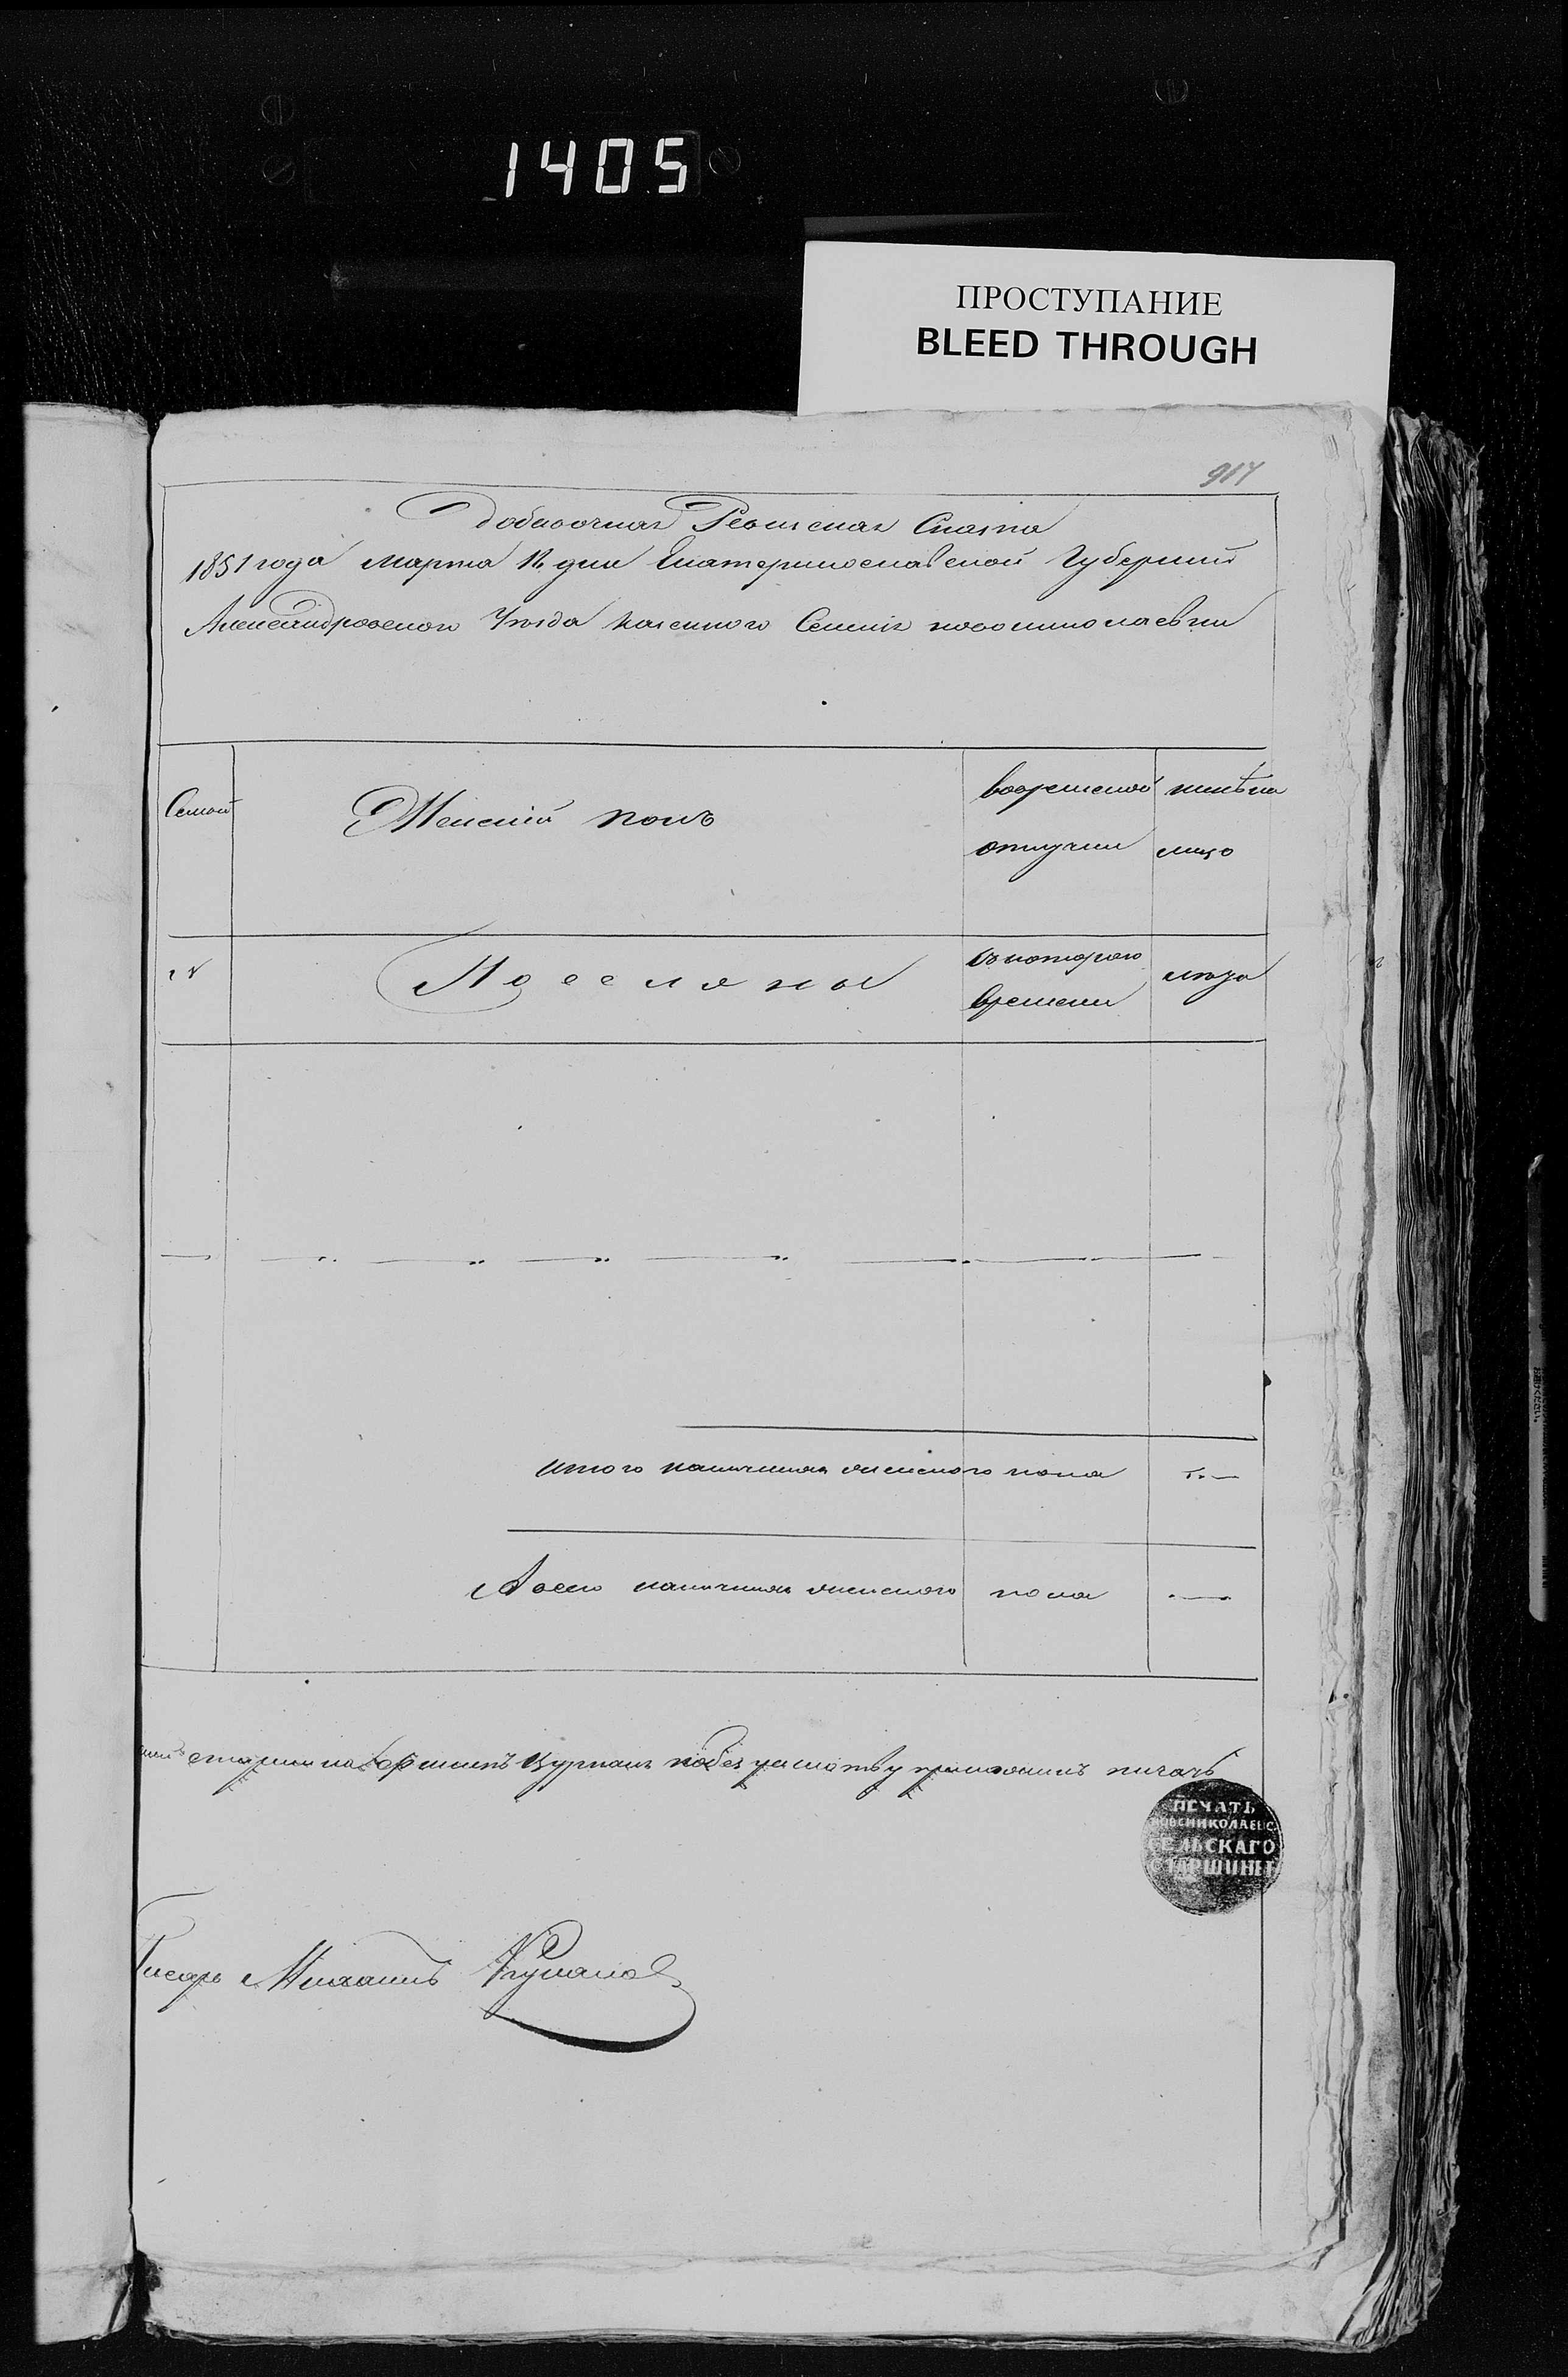 1405
ПРОСТУПАНИЕ
BLEED THROUGH
917
добавочная Ревиская Сказка
1851 года марта 12 дня Екатеринославской Губернии
Александровского Уезда казенного Селения новониколаевки
Семьи
Женский полъ
вовременой
отлучки
нинѣ на
лицо
№
Поселяны
съ которого
времени
лѣта
итого наличная женского пола
Всего наличная женского пола
старшина Цурканъ по без приложилъ печать
ПЕЧАТЬ
НОВОНИКОЛАЕВС
СЕЛЬСКАГО
СТАРШИНЫ
Писарь Михаилъ